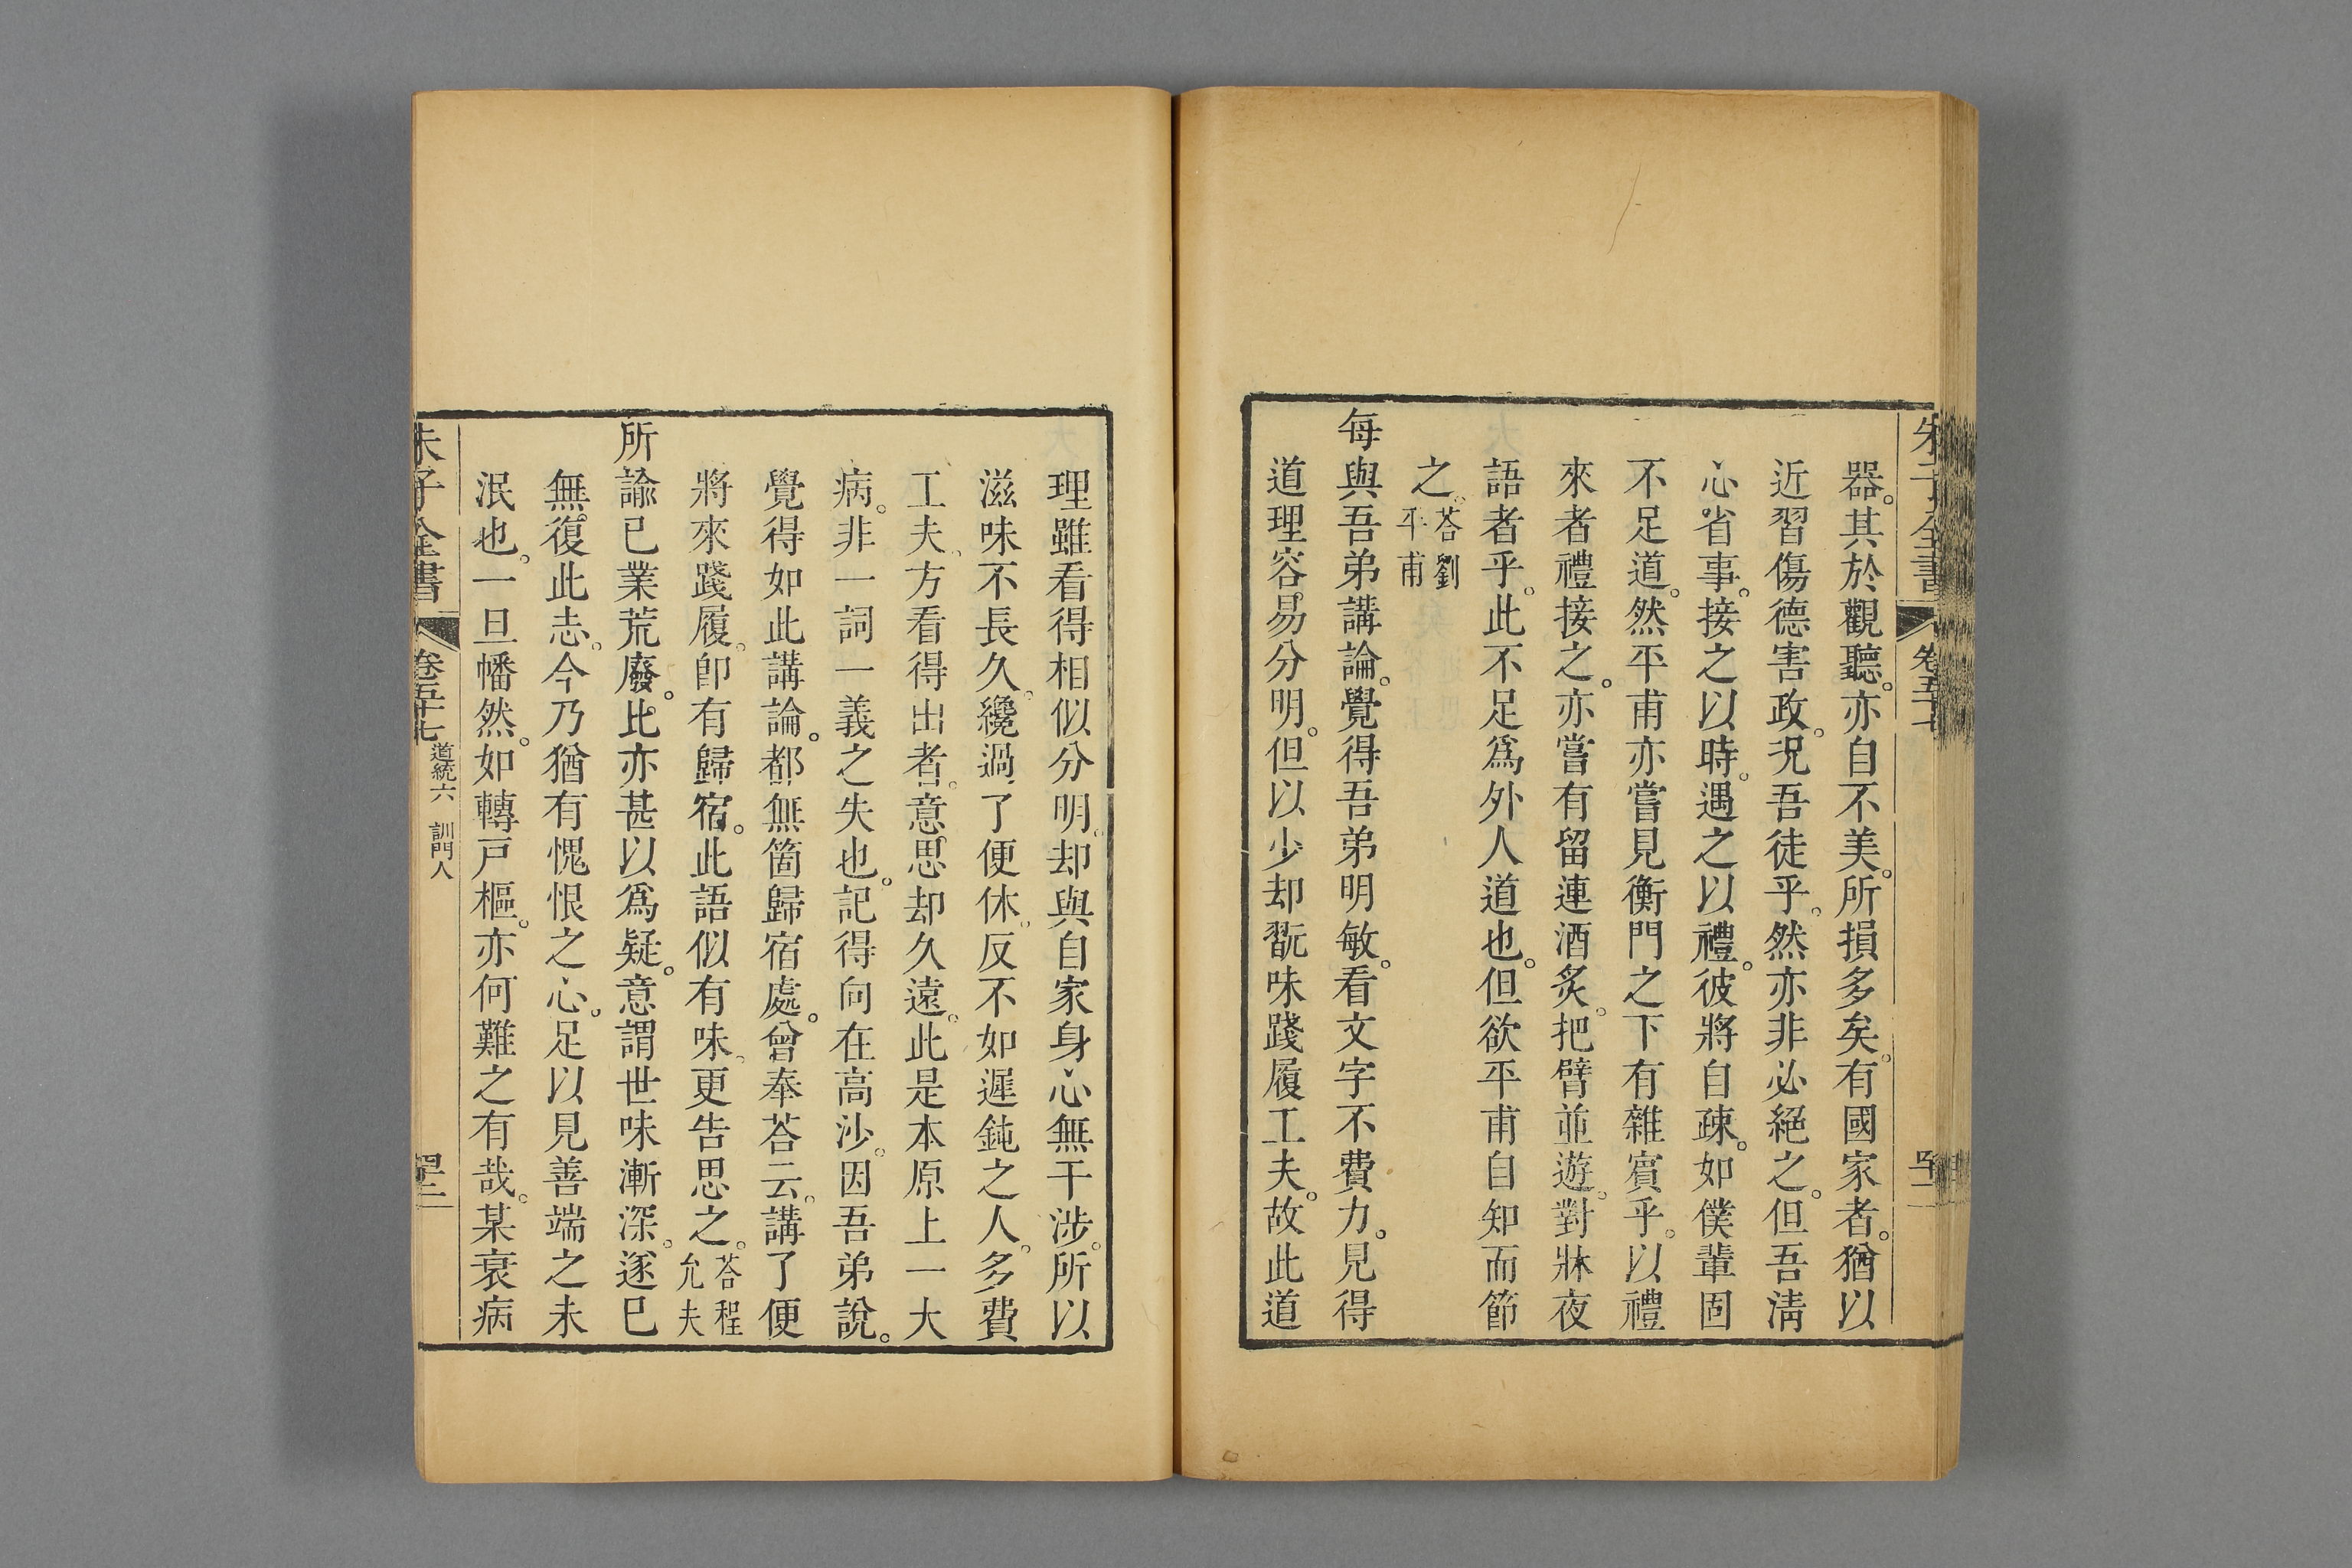 朱子全書 卷五十七
器。其於觀聽。亦自不美。所損多矣。有國家者。猶以
近習傷德害政。况吾徒乎。然亦非必絕之。但吾淸
心省事。接之以時。遇之以禮。彼將自疎。如僕輩固
不足道。然平甫亦嘗見衡門之下有雜賓乎。以禮
來者禮接之。亦嘗有留連酒炙。把臂並遊。對牀夜
語者乎。此不足爲外人道也。但欲平甫自知而節
之。荅劉平甫
每與吾弟講論。覺得吾弟明敏。看文字不費力。見得
道理容易分明。但以少却翫味踐履工夫。故此道
理雖看得相似分明。却與自家身心無干涉。所以
滋味不長久。纔過了便休。反不如遲鈍之人。多費
工夫。方看得出者。意思却久遠。此是本原上一大
病。非一詞一義之失也。記得向在高沙。因吾弟說。
覺得如此講論。都無箇歸宿處。曾奉荅云。講了便
將來踐履。卽有歸宿。此語似有味。更告思之。荅程允夫
所諭已業荒廢。比亦甚以爲疑。意謂世味漸深。遂已
無復此志。今乃猶有愧恨之心。足以見善端之未
泯也。一旦幡然。如轉戸樞。亦何難之有哉。某衰病
朱子全書 卷五十七 道統六 訓門人 四十二